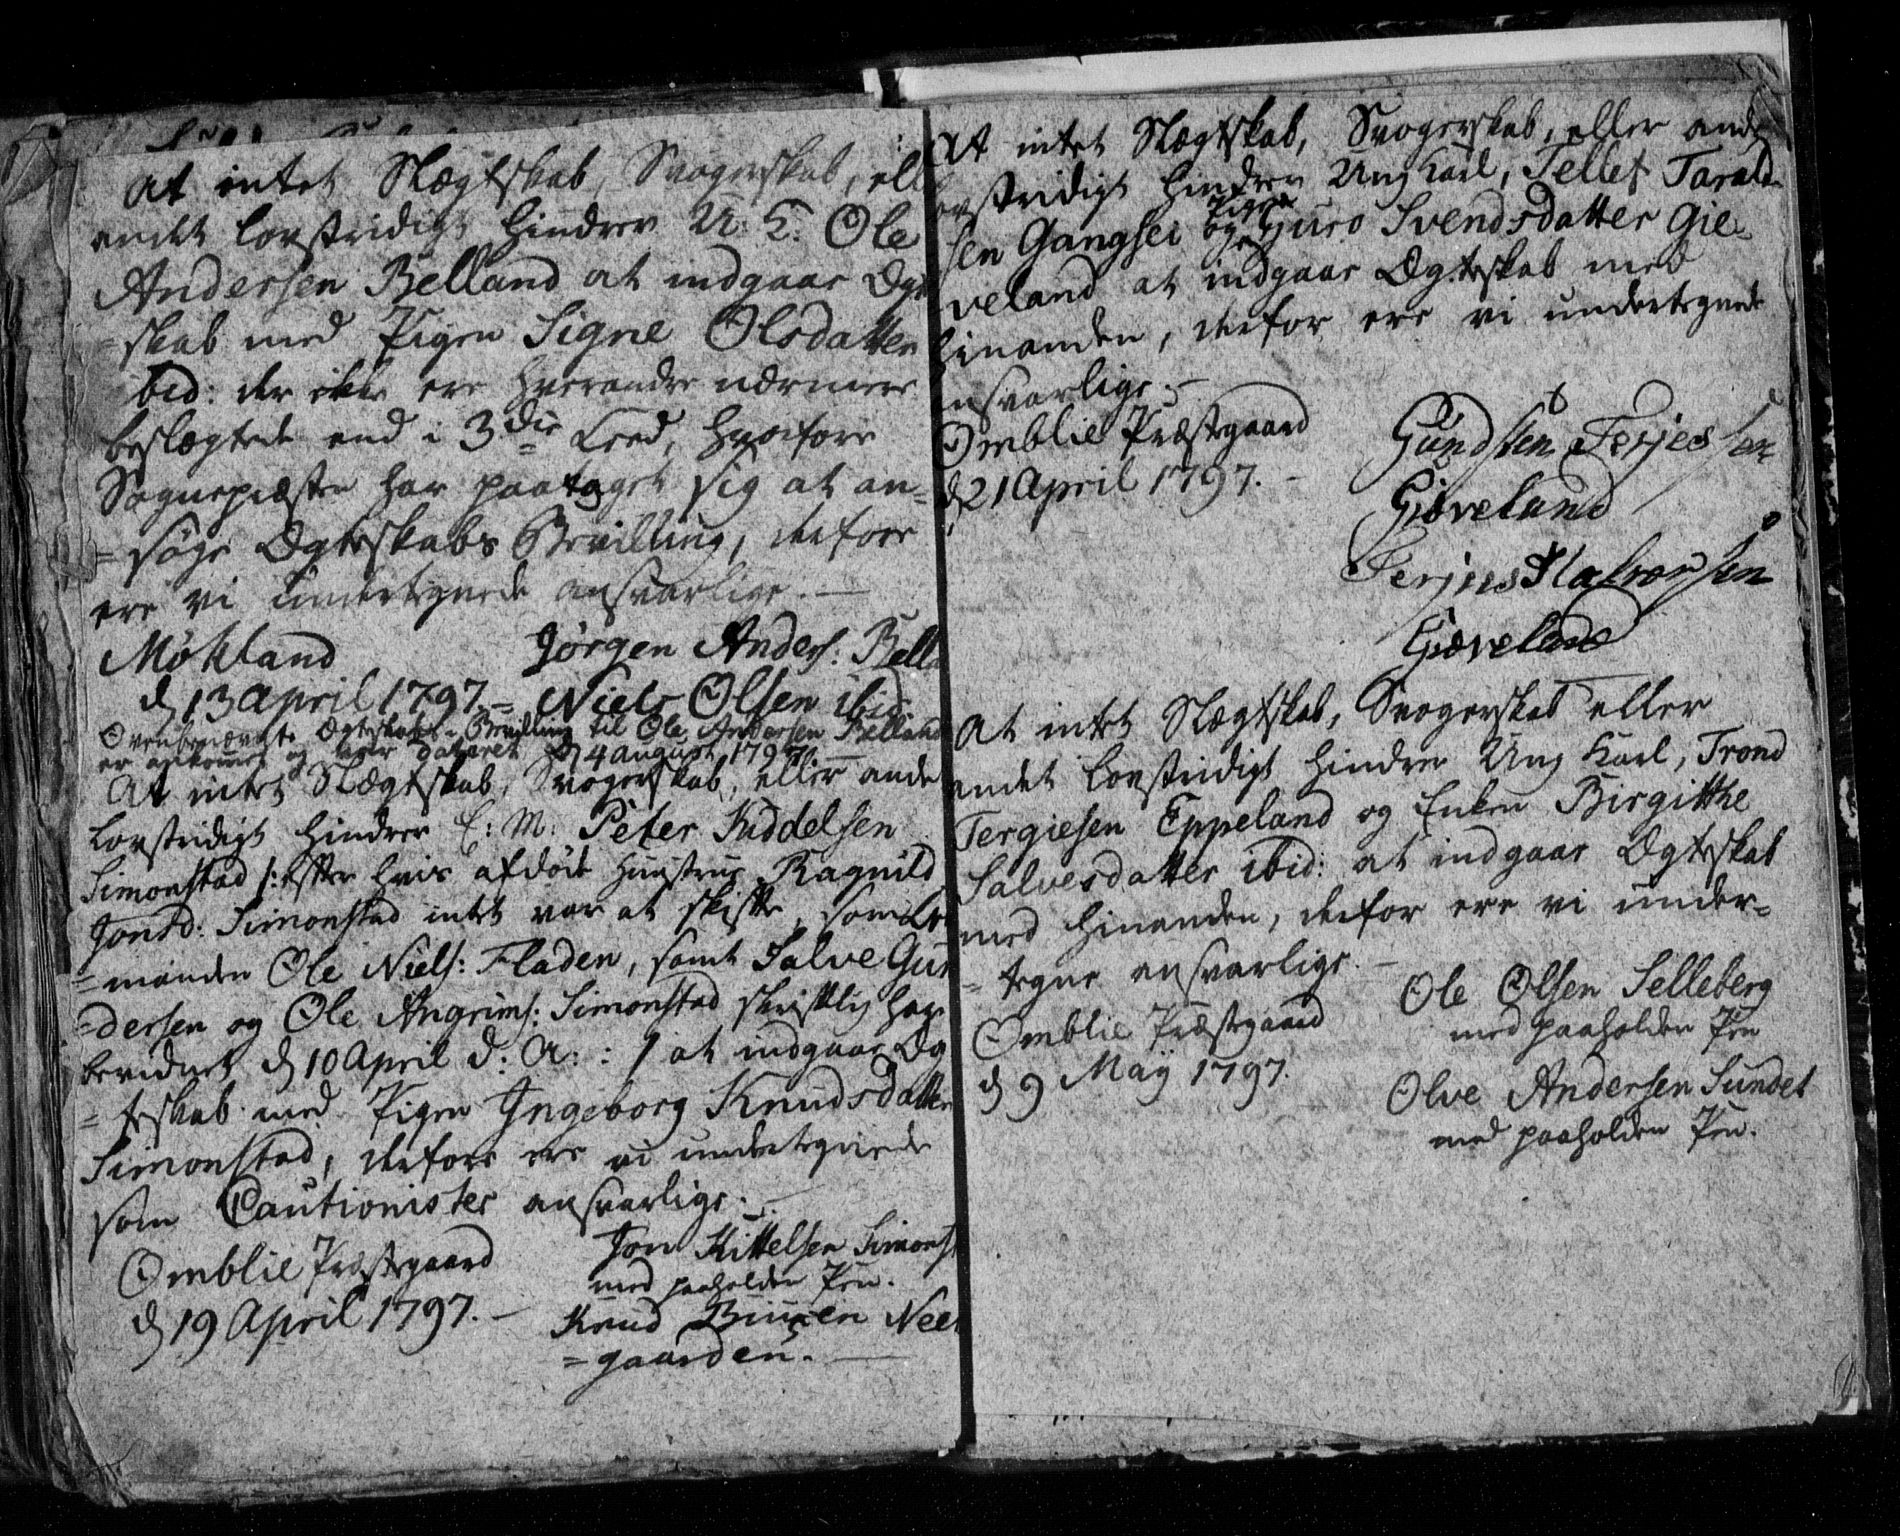 At intet Slægtskab, Svogerskab, ell
andet lovstridigt hindrer U: K: Ole
Andersen Belland at indgaar Ægt
=skab med Pigen Signe Olsdatter
ibid: der ikke ere hverandre nærmere
beslægtede end i 3die Leed, hvorfore
Sognepræsten har paataget sig at an=
=søge Ægteskabs Bevilling, derfore
ere vi undertegnede ansvarlige. —
Møkland Jørgen Anders: Bella
d 13 April 1797. = Niels Olsen ibid
Ovenbenævnte Ægteskabs-Bevilling til Ole Andersen Belland
er ankommet og er dateret d 4 August 1797.
At intet Slægtskab, Svogerskab, eller ande
Lovstridigt hindrer E: M: Peter Kiddelsen
Simonstad /: efter hvis afdøde Hustrue Ragnild
Jonsd: Simonstad intet var at skifte, som Le
=manden Ole Niels: Fladen, samt Salve Gun
=dersen og Ole Angrims: Simonstad skriftlig har
bevidnet d 10 April d: A: :/ at indgaar Æg
=teskab med Pigen Ingeborg Knudsdatter
Simonstad, derfore ere vi undertegnede
som Cautionister ansvarlige. —
Omblie Præstegaard Jon Kittelsen Simonst
med paaholden Pen.
d 19 April 1797. — Knud Biursen Nee
=gaarden. —
At intet Slægtskab, Svogerskab, eller ande
ovstridigt hindrer Ung Karl, Tellef Tarald
Pigen
sen Gangsei og Guro Svendsdatter Gie=
veland at indgaar Ægteskab med
hinanden, derfor ere vi undertegnede
ansvarlige. —
Omblie Præstegaard Gundsten Terjessen
d 21 April 1797. — Giøveland
Terjus Halvorsen
Giæveland
At intet Slægtskab, Svogerskab eller
andet lovstridigt hindrer Ung Karl, Trond
Tergiesen Eppeland og Enken Birgitthe
Salvesdatter ibid: at indgaar Ægteskab
med hinanden, derfor ere vi under=
=tegne ansvarlige. —
Omblie Præstegaard Ole Olsen Selleberg
med paaholden Pen
d 9 May 1797. Olve Andersen Sundet
med paaholden Pen.